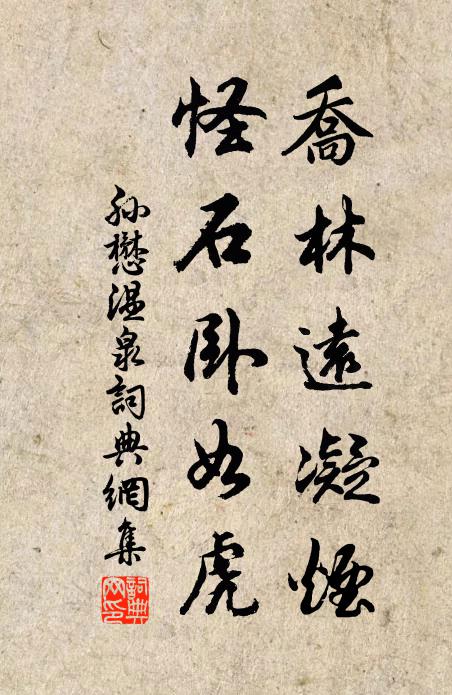 喬林遠凝煙
怪石臥如虎
孙懋温泉詞典網集
詞典